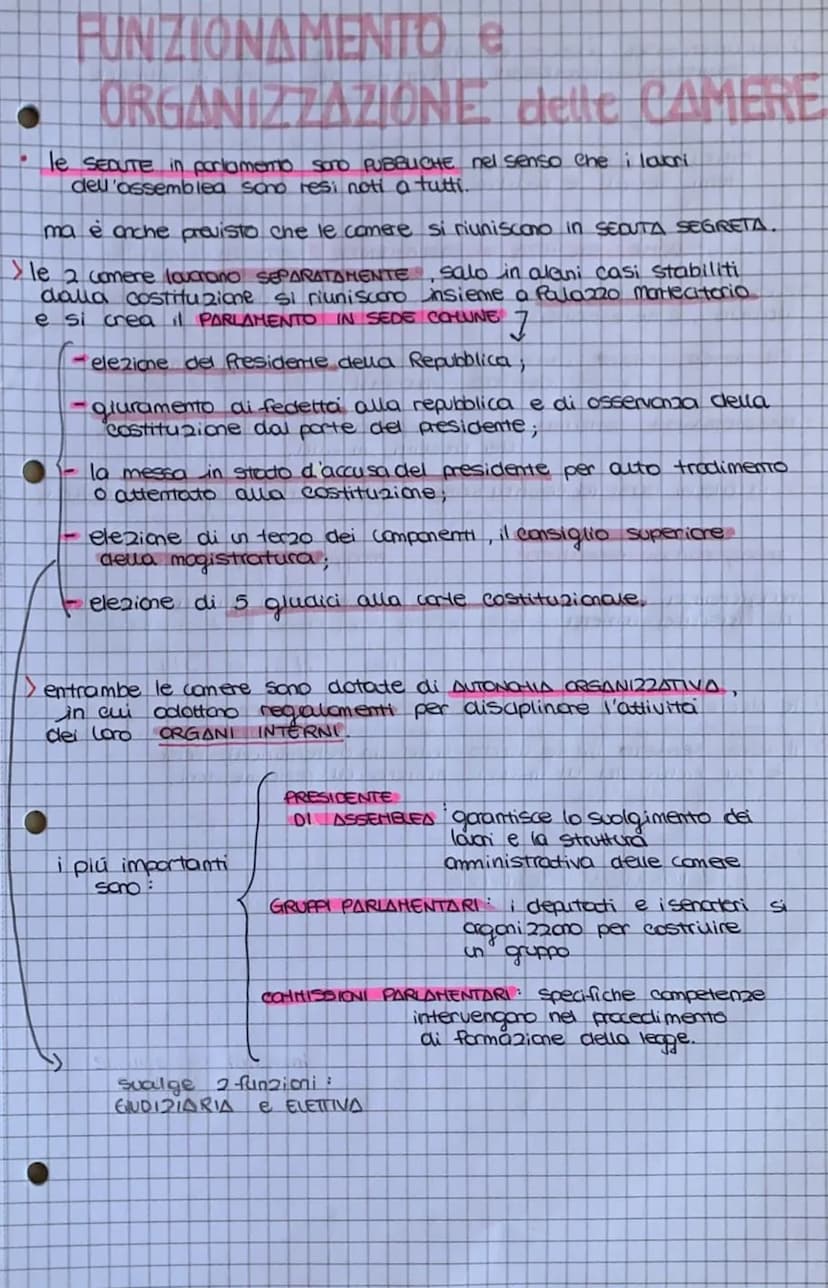 FUNZIONAMENTO e
ORGANIZZAZIONE delle CAMERE
• le SEDUTE in parlamento sono PUBBLICHE nel senso che i lavori
dell'assemblea sono resi noti a tutti.
ma è anche previsto che le camere si riuniscono in SEDUTA SEGRETA.
> le 2 camere lavorono SEPARATAMENTE, salo in alcuni casi stabiliti
dalla costituzione si riuniscono insieme a Palazzo Montecitorio
e si crea il PARLAMENTO IN SEDE COMUNE
- elezione del Presidente della Repubblica;
- giuramento di fedeltà alla repubblica e di osservanza della
costituzione dal parte del presidente;
- la messa in stato d'accusa del presidente per alto tradimento
o attentato alla costituzione;
- elezione di un terzo dei componenti, il consiglio superiore
della magistratura;
- elezione di 5 giudici alla corte costituzionale.
> entrambe le camere sono dotate di AUTONOMIA ORGANIZZATIVA,
in cui adottano regalamenti per disciplinare l'attività
dei loro ORGANI INTERNI.
i più importanti
sono:
PRESIDENTE
DI ASSEMBLEA: garantisce lo svolgimento dei
lavori e la struttura
amministrativa delle camere
GRUPPI PARLAMENTARI: i deputati e i senatori si
organizzano per costruire
un gruppo
COMMISSIONI PARLAMENTARI: specifiche competenze
intervengono nel procedimento
di formazione della legge.
svolge 2 funzioni:
GIUDIZIARIA e ELETTIVA